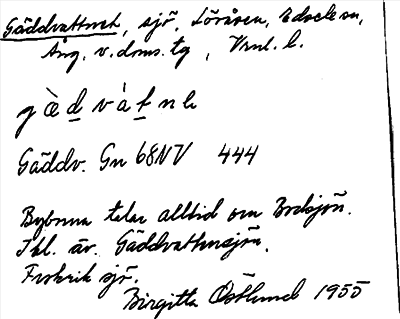 Gäddvattnet, sjö, Löråsen, Edsele sn,
Ång. v. doms. tg, Vrnl. l.
Gäddv. Gn 68NV 444
Byborna talar alltid om Bodsjön.
Ibl. äv. Gäddvattensjön.
Fiskrik sjö.
Birgitta Östlund 1955